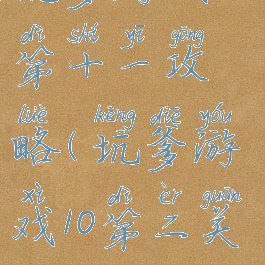 dì shí yī gōng
第十一攻
lüè kēng diē yóu
略(坑爹游
xì dì èr guān
戏10第二关